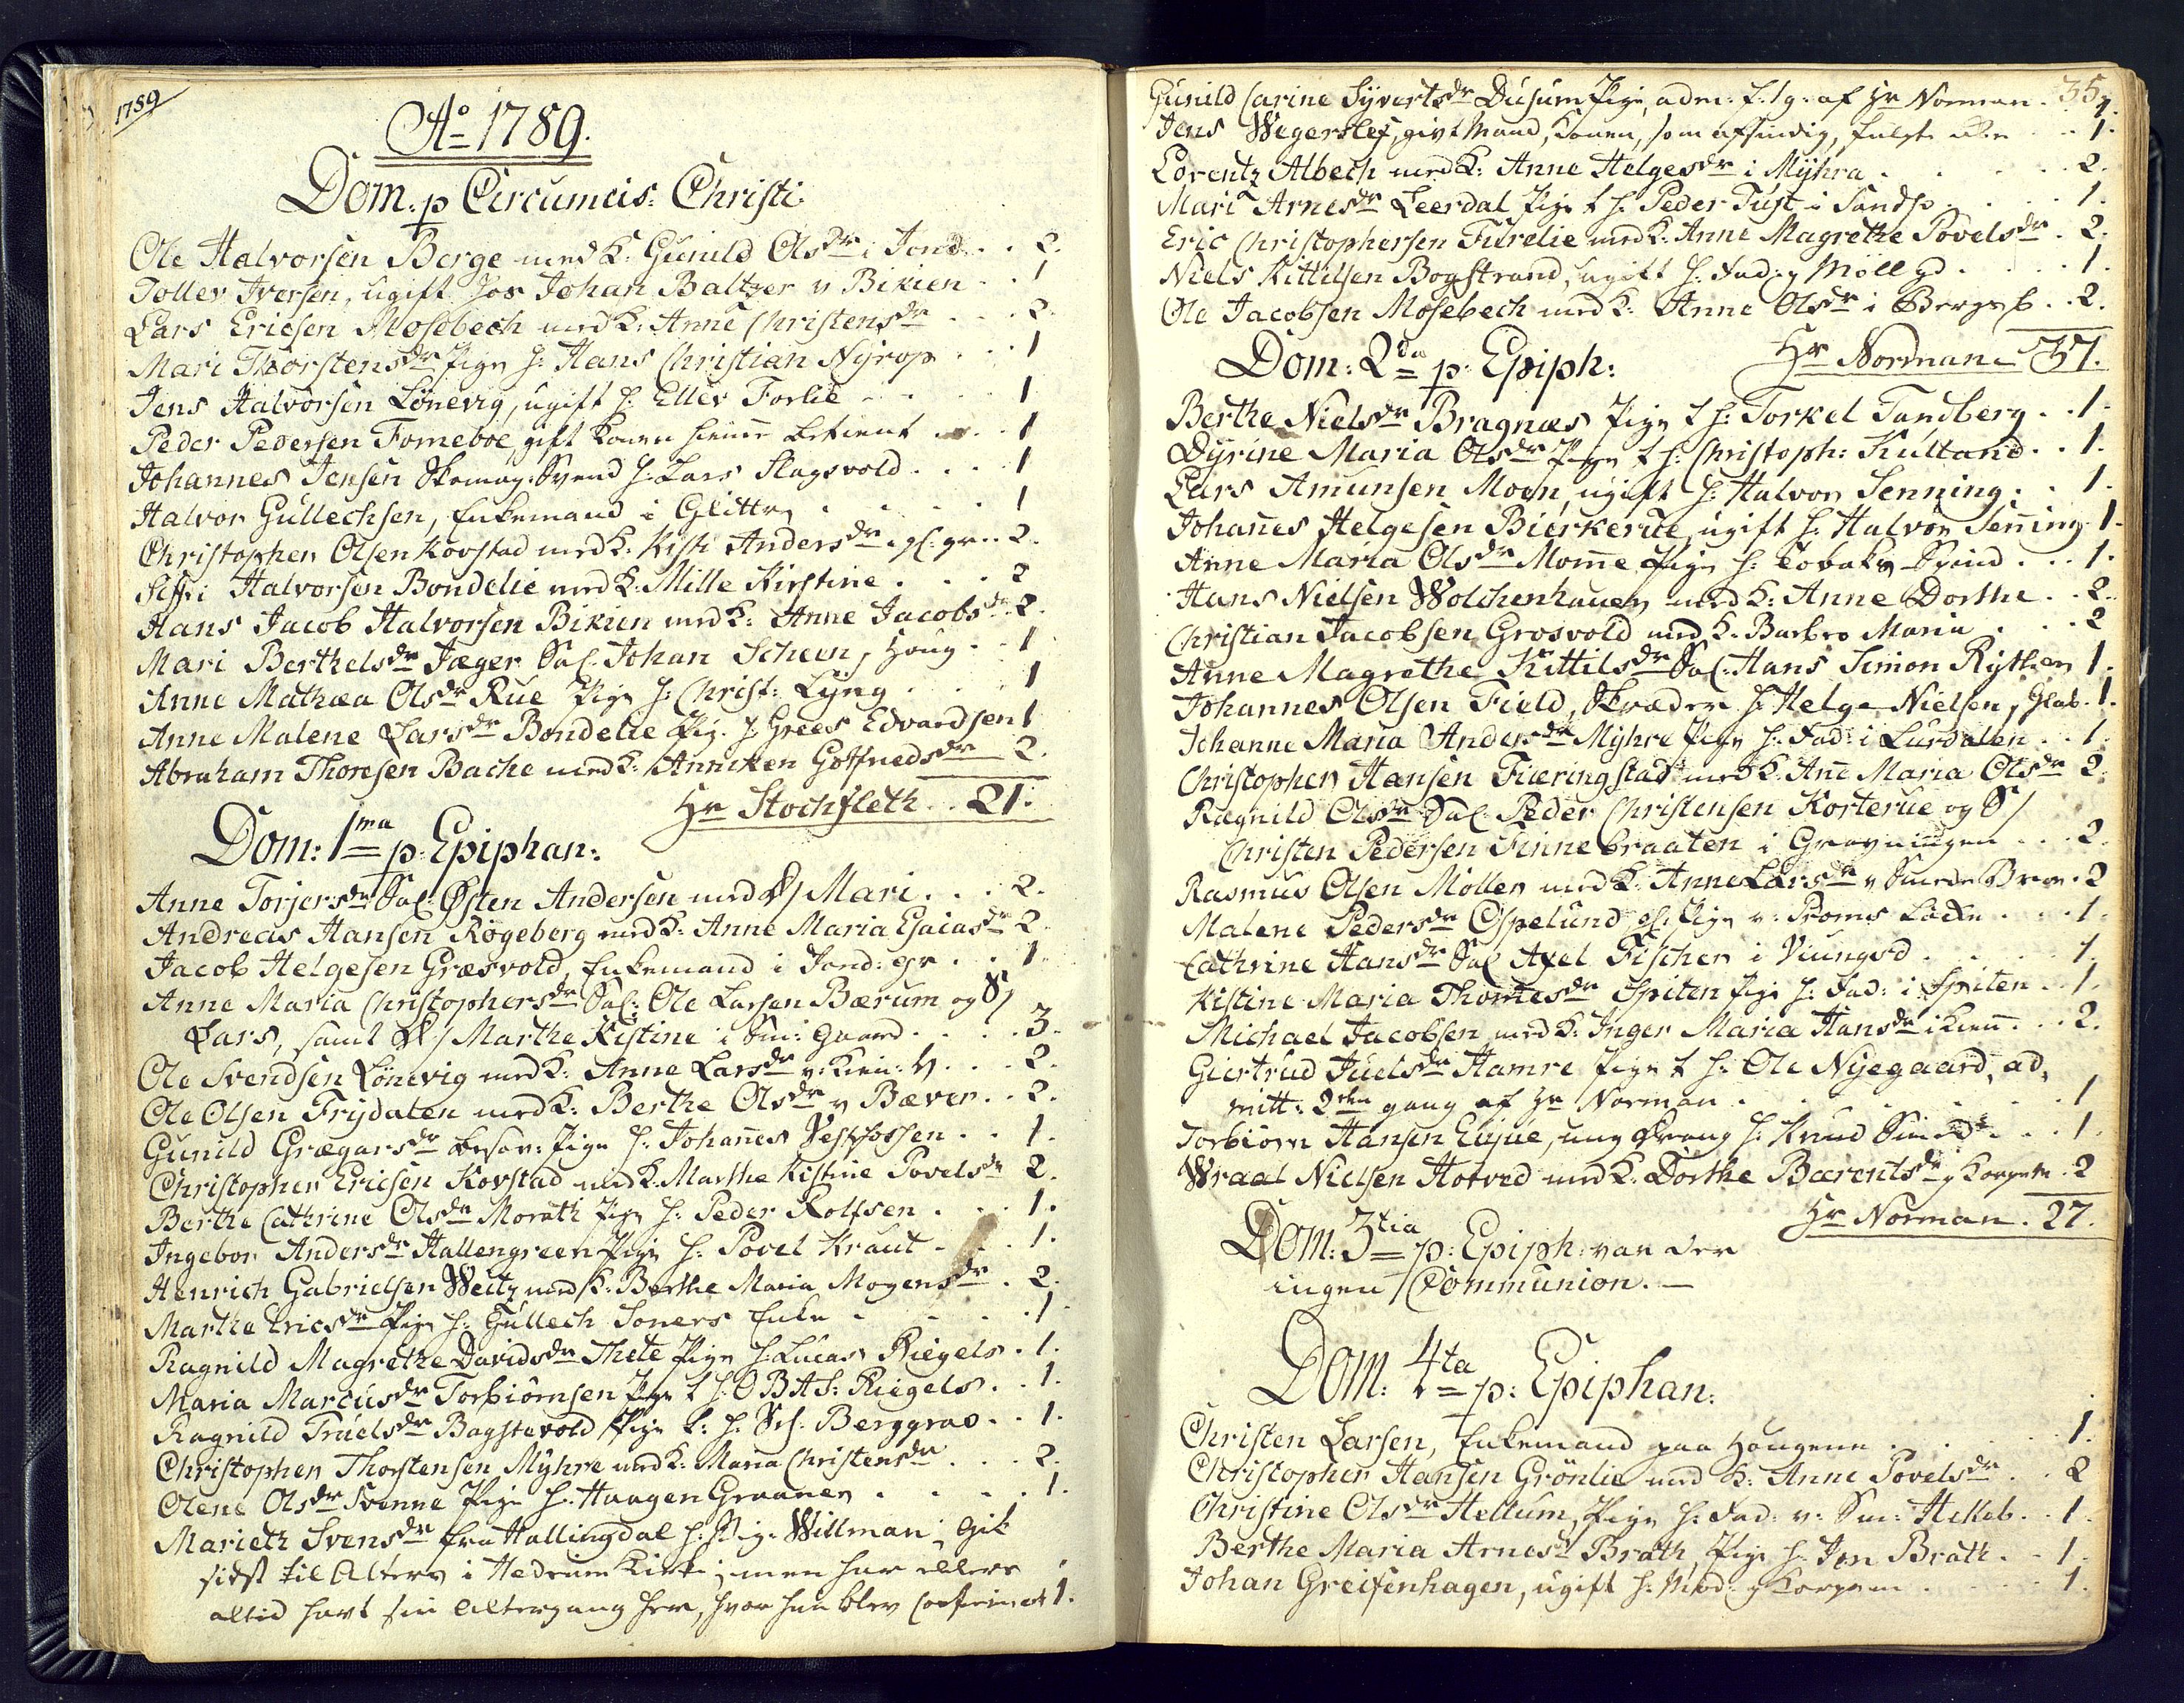 1789
Ao 1789.
Dom. p Circumcis: Christi
Ole Halvorsen Berge med K. Gunild Olsdr i Jond. . . 2.
Tollev Iversen, ugift hos Johan Baltzer v Bikien . . 1
Lars Ericsen Mosebech med K: Anne Christensdr . . . 2.
Mari Thorstensdr Pige h: Hans Christian Nyrop . . . 1
Jens Halvorsen Lönevig, ugift h: Ellev Forlie . . . 1
Peder Pedersen Forneboe, gift Konen hiemme betient . . 1
Johannes Jensen Skomag: Svend h: Lars Slagsvold . . . 1
Halvor Gullechsen, Enkemand i Glitter . . . . 1
Christopher Olsen Kovstad med K: Kisti Andersdr . gl: gr. . 2.
Siffri Halvorsen Bondelie med K: Mille Kirstine . . . 2
Hans Jacob Halvorsen Bikien med K: Anne Jacobsdr . 2.
Mari Berthelsdr Jæger Sal: Johan Scheen, Houg . . 1
Anne Mathæa Olsdr Rue Pige h: Christ: Lyng . . . 1
Anne Malene Larsdr Bondelie Pig. h Grees Edvardsen 1
Abraham Thoresen Bache med K: Anniken Gotfriedsdr 2.
Hr Stochfleth . . 21.
Dom: 1ma p. Epiphan:
Anne Torjersdr Sal: Østen Andersen med D/ Mari . . . 2.
Andreas Hansen Rögeberg med K: Anne Maria Esaiasdr 2
Jacob Helgesen Græsvold, Enkemand i Jond: gr . . 1.
Anne Maria Christophersdr Sal: Ole Larsen Bærum og S/
Lars, samt D/ Marthe Kistine i Sm: Gaard . . . . 3.
Ole Svendsen Lönevig med K: Anne Larsdr v: Kien: V . . . 2.
Ole Olsen Frydalen med K: Berthe Olsdr v Bæver . . 2.
Gunild Grægarsdr besov: Pige h: Johannes Vestfossen . . 1.
Christopher Ericsen Kovstad med K. Marthe Kistine Povelsdr 2.
Berthe Cathrine Olsdr Morath Pige h: Peder Rolfsen . . . 1.
Ingebor Andersdr Hallengreen Pige h: Povel Kraut . . . 1.
Henrich Gabrielsen Weitz med K: Berthe Maria Mogensdr . 2.
Marthe Ericsdr Pige h: Gullech Soners Enke . . . . 1
Ragnild Magrethe Davidsdr Thete Pige h: Lucas Riegels . 1.
Maria Marcusdr Torbiörnsen Pige t h: O B A S: Riegels . . 1.
Ragnild Truelsdr Bagstevold Pige t: h: Berggrav . . 1.
Christopher Thorstensen Myhre med K: Maria Christensdr . . . 2.
Olene Olsdr Svenne Pige h: Haagen Graanes . . . . 1.
Marieth Svensdr fra Hallingdal h: Willman; gik
sidst til Alters i Hedrum Kirke; men har ellers
altid havt sin Altergang her, hvor hun blev Confirmert 1.
35.
Gunild Carine Syvertsdr Dusum Pige, adm: f. 1g: af Hr Norman . 1.
Jens Wegersløf, givt Mand, Konen, som affindig, fulgte ikke . . 1.
Lorentz Albech med K: Anne Helgesdr i Myhra . . . . . 2.
Mari Arnesdr Leerdal Pige t h: Peder Tust i Sandsv . . . 1.
Eric Christophersen Furelie med K: Anne Magrethe Povelsdr . 2.
Niels Kittilsen Bogstrand, ugift h: Fad: y Möll gd . . . . 1.
Ole Jacobsen Mosebech med K: Anne Olsdr i Bergsb . . 2.
Hr Norman 37.
Dom: 2da p. Epiph:
Berthe Nielsdr Bragnæs Pige t h: Torkel Tandberg . . 1.
Dyrine Maria Olsdr Pige t h: Christoph: Kultand . . 1.
Lars Amunsen Moen, ugift h: Halvor Senning . . 1.
Johannes Helgesen Bierkerue, ugift h: Halvor Senning . 1.
Anne Maria Olsdr Momme Pige h: Tobaks Spind . . . 1.
Hans Nielsen Wolchenhauer med K: Anne Dorthe . . 2.
Christian Jacobsen Grosvold med K. Barbro Maria . . . 2
Anne Magrethe Kittilsdr Sal: Hans Simon Rytter 1.
Johannes Olsen Field, Skræder h: Helge Nielsen, Glab . 1.
Johanne Maria Andersdr Myhre Pige h: Fad: i Lurdalen . . 1.
Christopher Hansen Fiæringstad med K. Anne Maria Olsdr 2.
Ragnild Olsdr Sal: Peder Christensen Korterue og S/
Christen Pedersen Finnebraaten i Gravningen . . . 2.
Rasmus Olsen Möller med K: Anne Larsdr v Smeden Broe . 2
Malene Pedersdr Ospelund gl: Pige v: Proms Löcke . . . 1.
Cathrine Hansdr Sal Axel Fischer i Viungsd . . . 1.
Kistine Maria Thomesdr Spiten Pige h: Fad: i Spiten . . 1.
Michael Jacobsen med K: Inger Maria Hansdr i Kien . . . 2.
Giertrud Juelsdr Hamre Pige t h: Ole Nyegaard, ad,,
mitt: 2den gang af Hr Norman . . . . . 1
Torbiörn Hansen Eujue, ung Dreng h: Knud Smed . . . 1.
Wraal Nielsen Hotved med K. Dorthe Bærentsdr y Korpen . 2
Hr Norman . 27.
Dom: 3tia p: Epiph: var der
ingen Communion. —
Dom: 4ta p: Epiphan:
Christen Larsen, Enkemand paa Hougene . . . . 1.
Christopher Hansen Grönlie med K: Anne Povelsdr . . 2
Christine Olsdr Hellum, Pige h: Fad: v: Sm: Hilleb . . 1.
Berthe Maria Arnesdr Brath, Pige h: Jon Brath . . 1.
Johan Greifenhagen, ugift h: Mod: y Korpen . . . . 1.